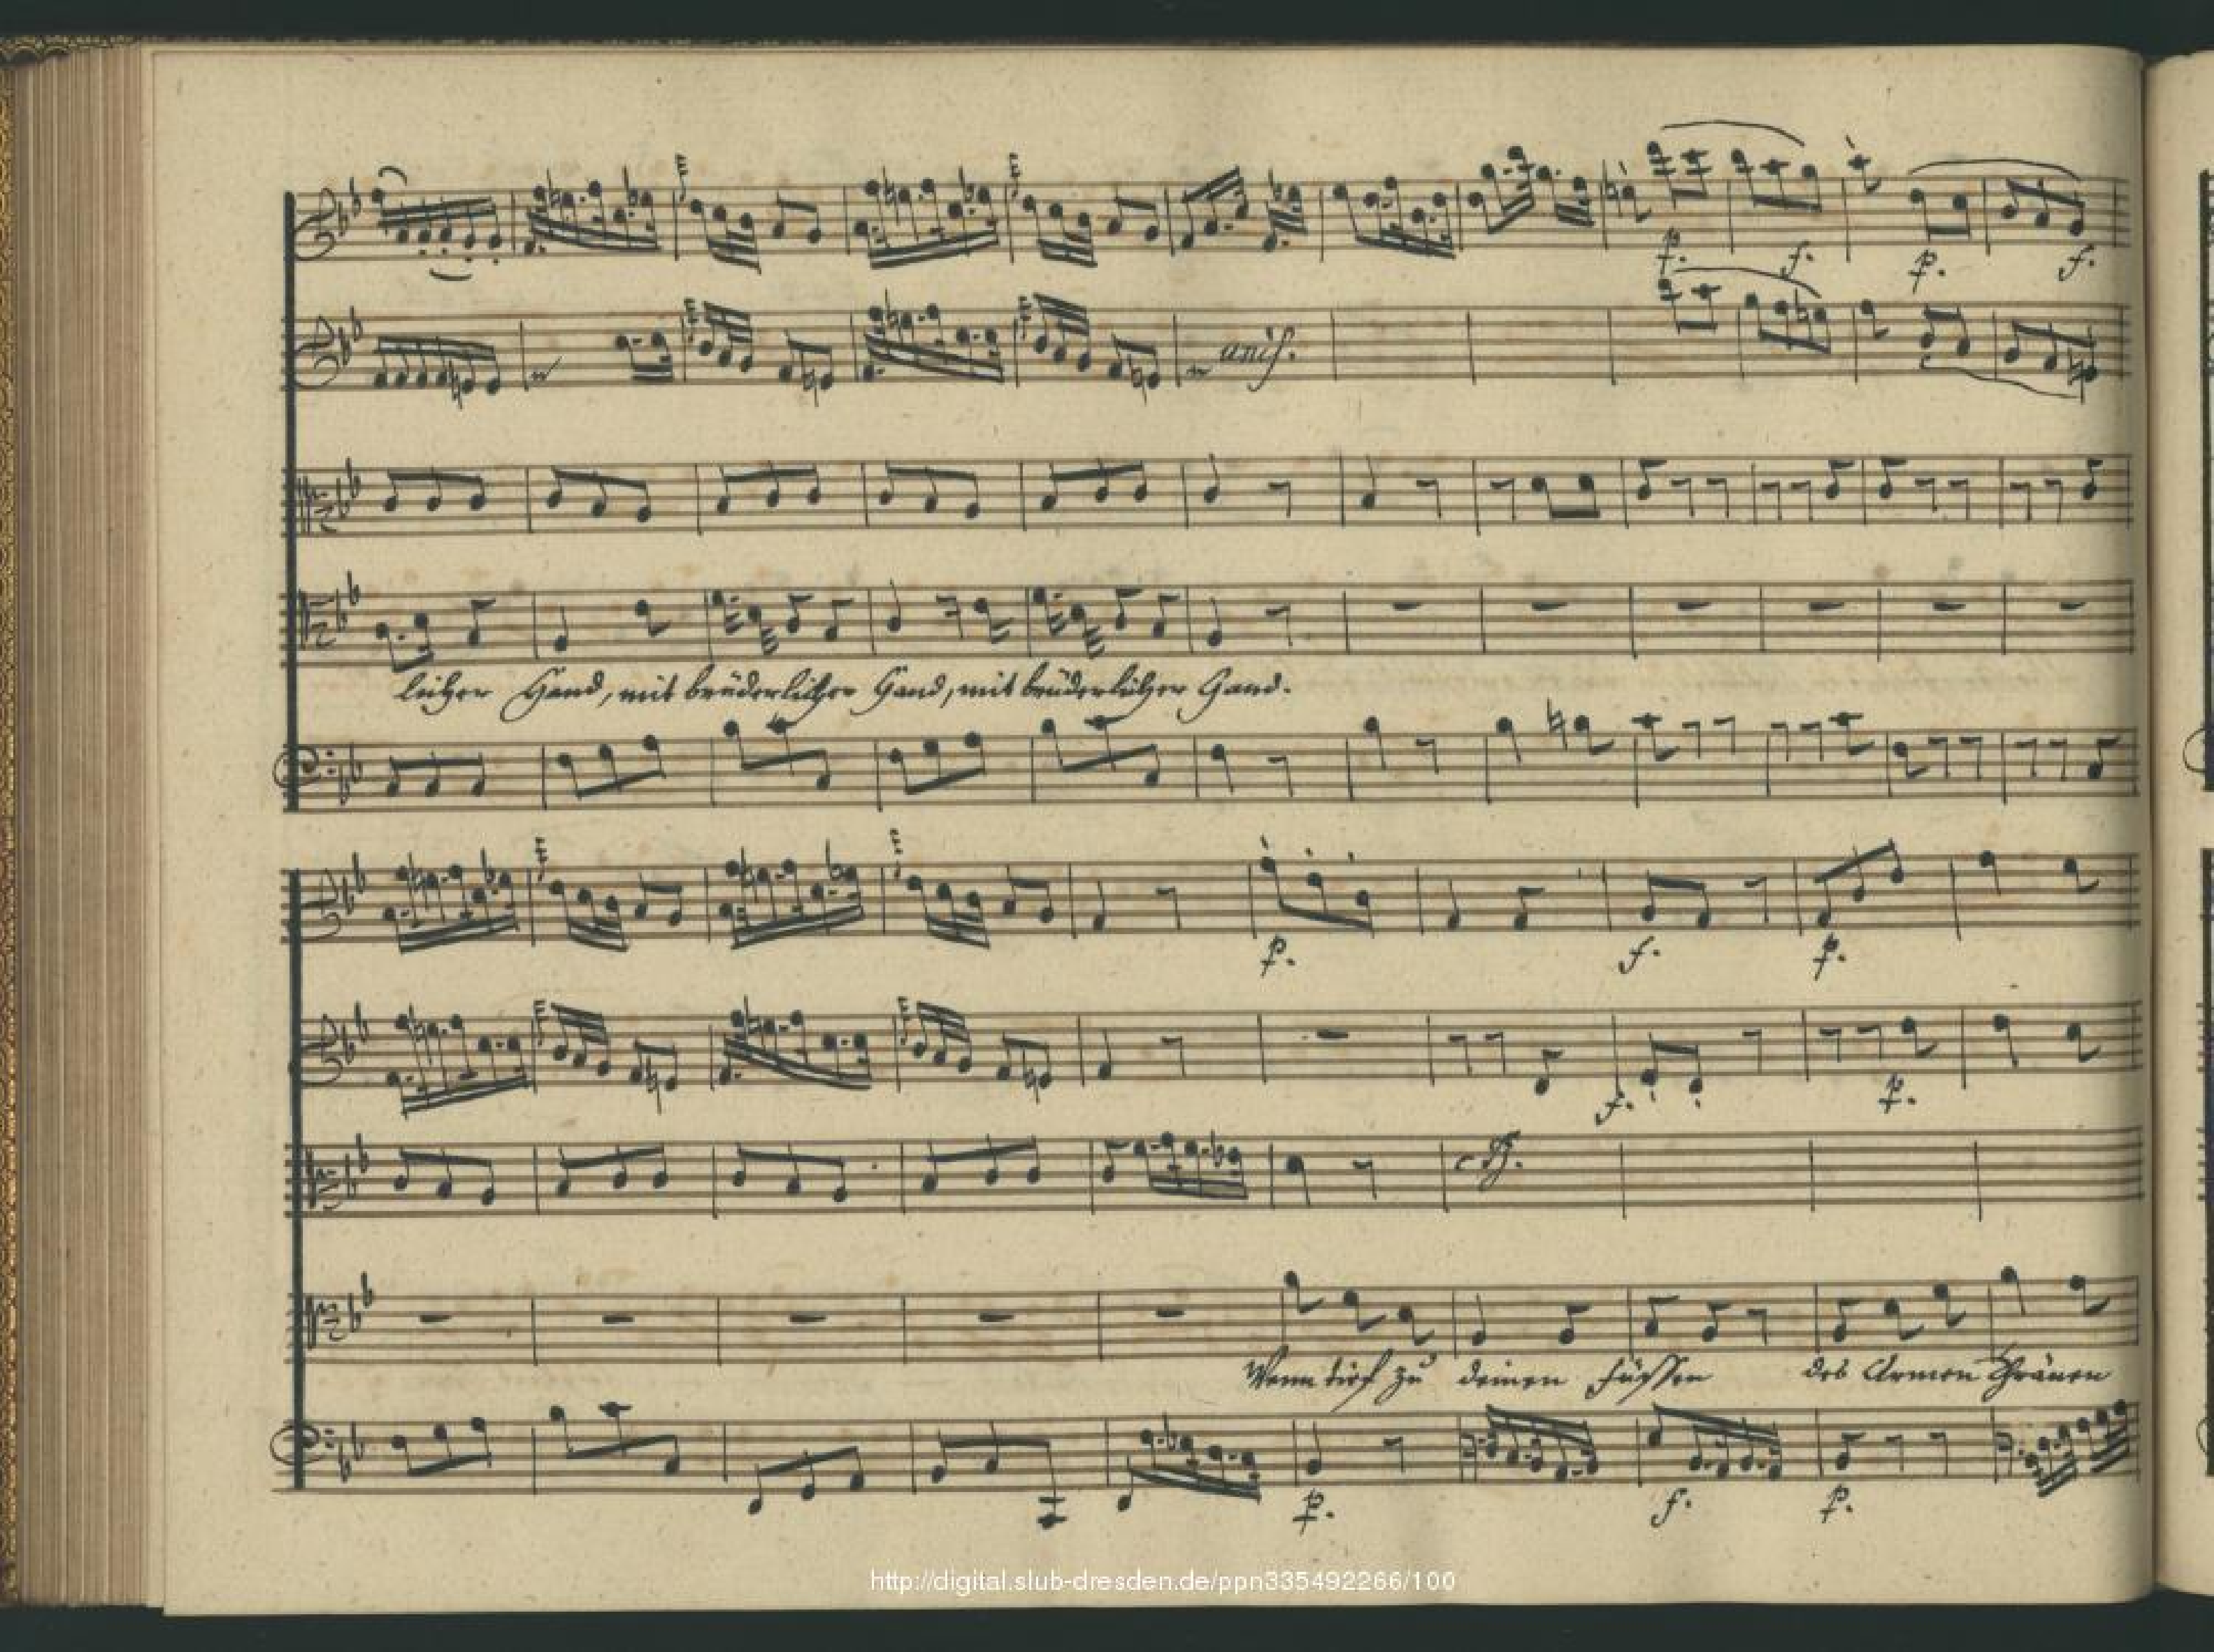 p. f. p. f.
unis.
licher Hand, mit brüderlicher Hand, mit brüderlicher Hand.
p. f. p.
f. p.
Wenn tief zu deinen Füssen des Armen Thränen
p. f. p.
http://digital.slub-dresden.de/ppn335492266/100